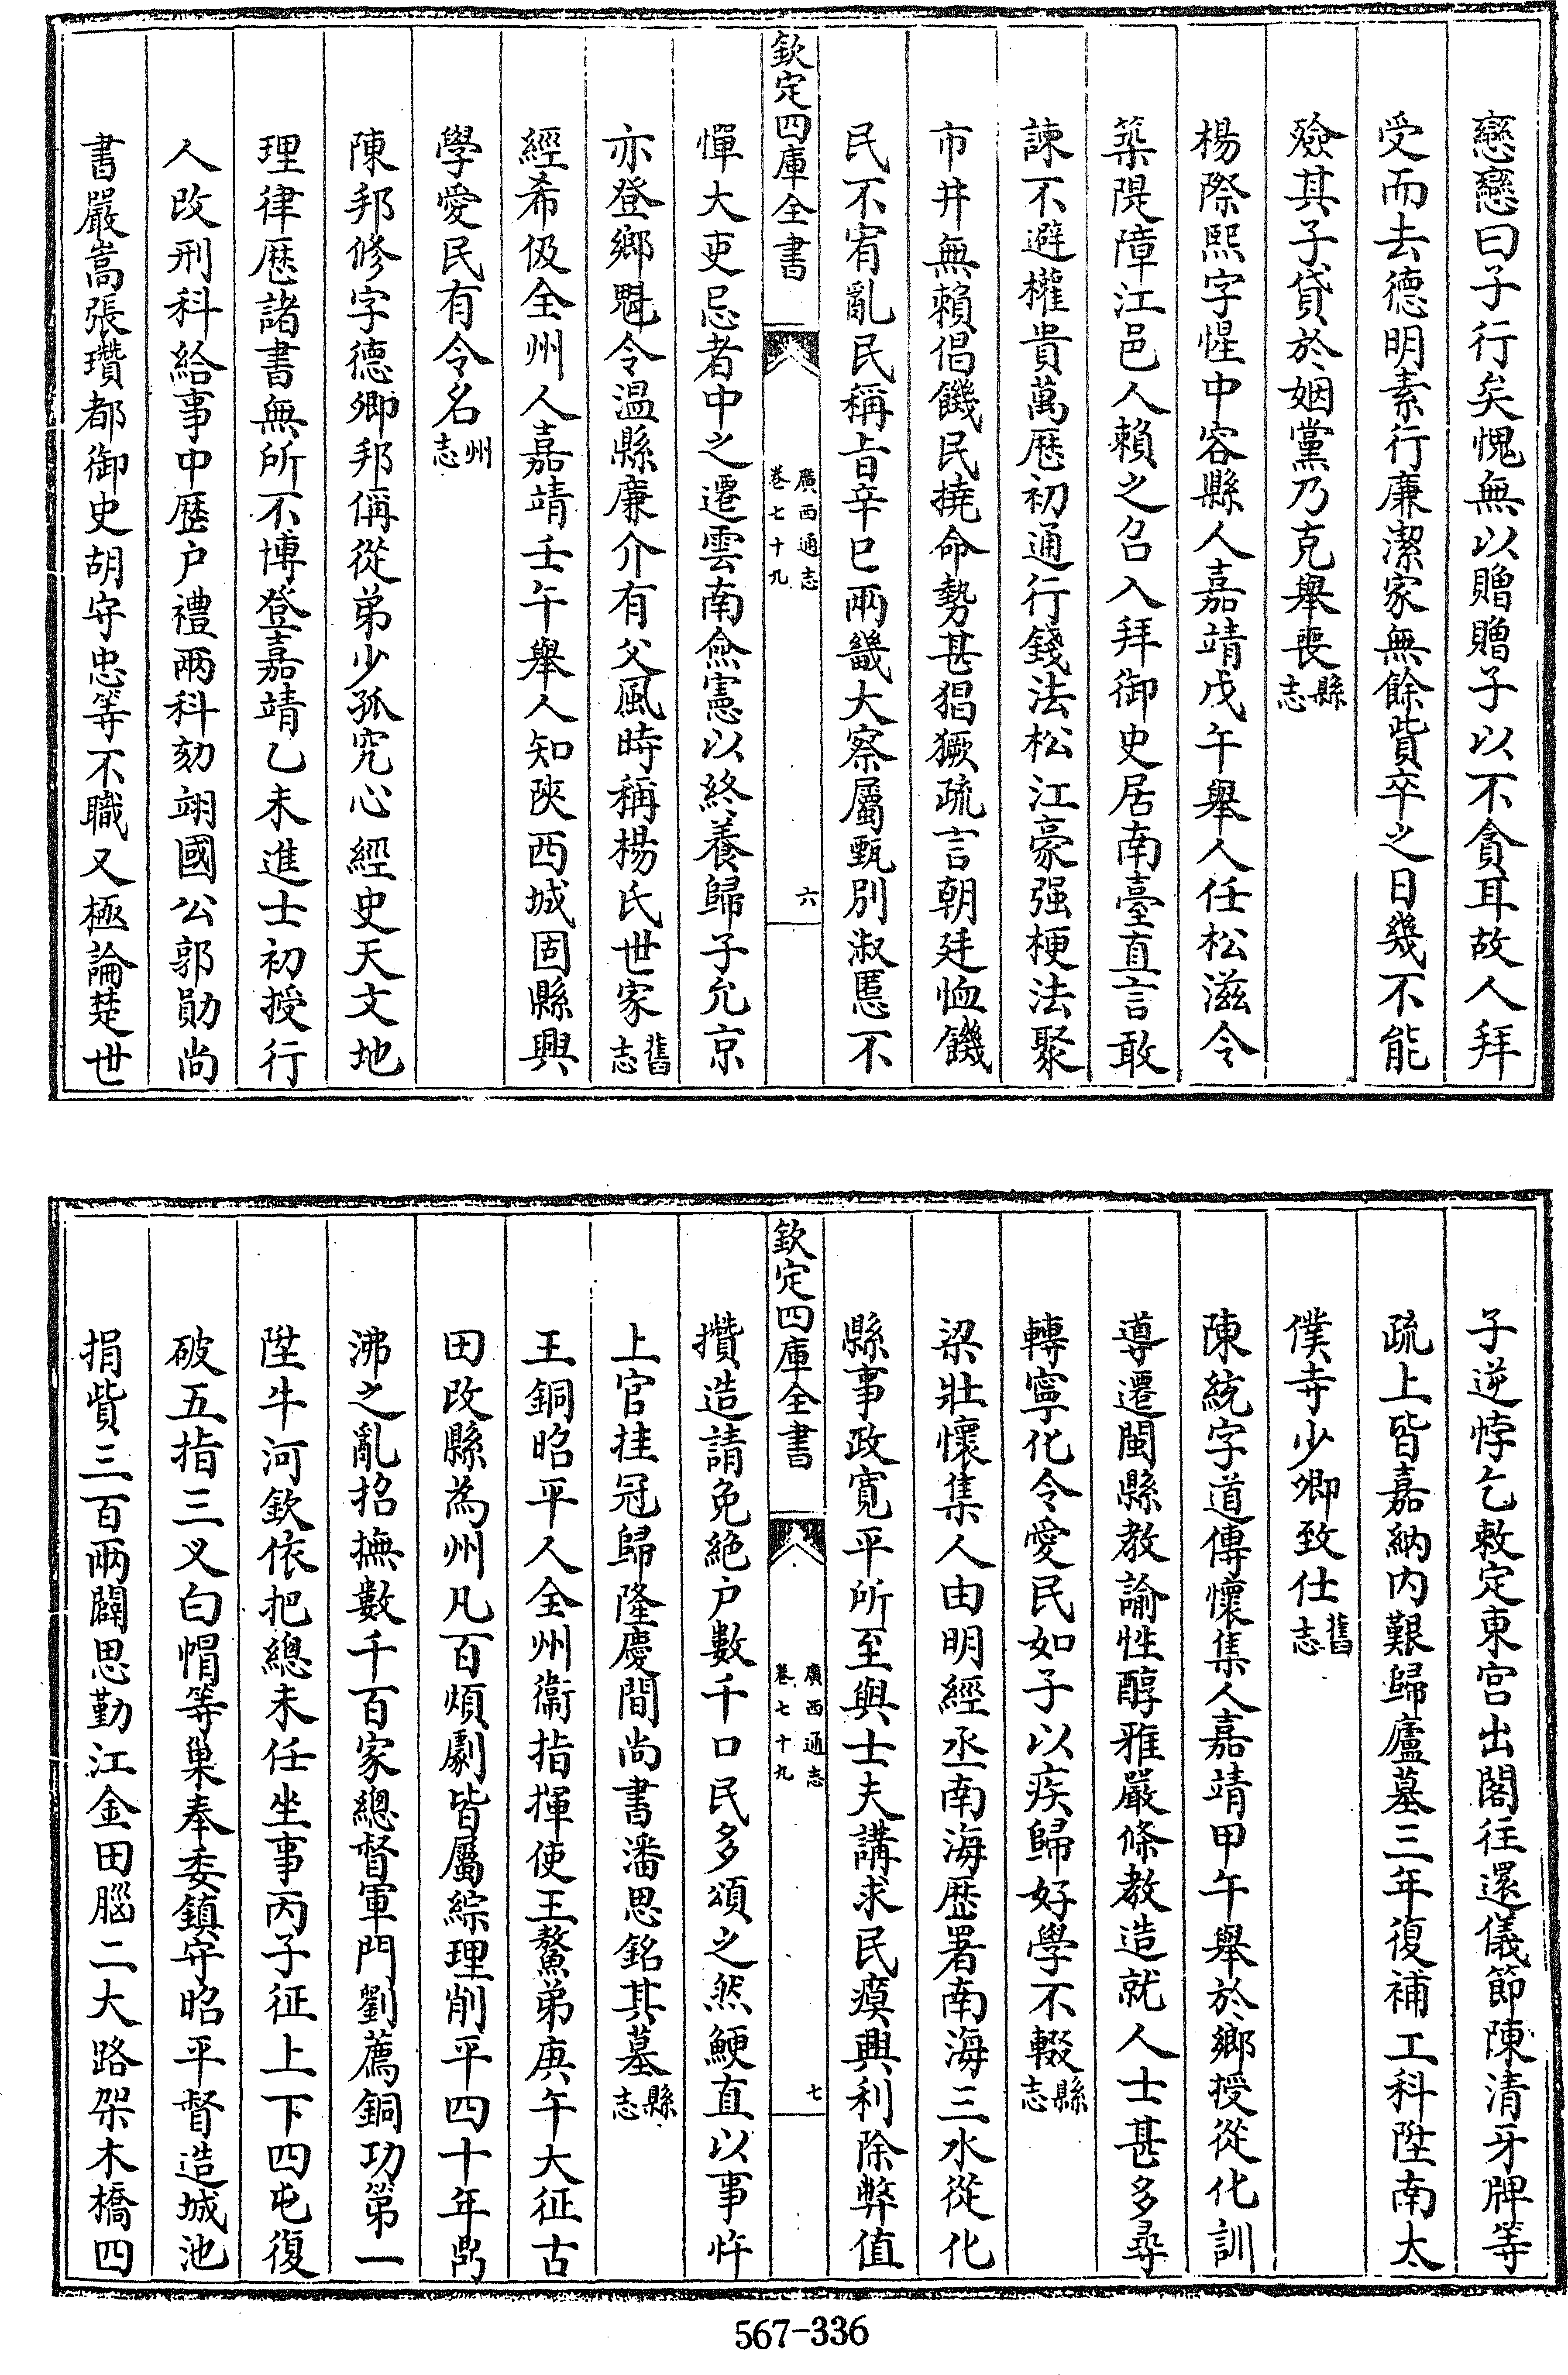 戀戀曰子行矣愧無以贈贈子以不貪耳故人拜
受而去德明素行廉潔家無餘貲卒之日幾不能
殮其子貸於姻黨乃克舉喪縣志
楊際熙字惺中容縣人嘉靖戊午舉人任松滋令
築隄障江邑人賴之召入拜御史居南臺直言敢
諫不避權貴萬歷初通行錢法松江豪强梗法聚
市井無賴倡饑民撓命勢甚猖獗疏言朝廷恤饑
民不宥亂民稱旨辛巳兩畿大察屬甄别淑慝不
欽定四庫全書
廣西通志
卷七十九
六
憚大吏忌者中之遷雲南僉憲以終養歸子允京
亦登鄉魁令温縣廉介有父風時稱楊氏世家舊志
經希伋全州人嘉靖壬午舉人知陜西城固縣興
學愛民有令名州志
陳邦修字德卿邦偁從弟少孤究心經史天文地
理律歷諸書無所不博登嘉靖乙未進士初授行
人改刑科給事中歷户禮兩科劾翊國公郭勛尚
書嚴嵩張瓚都御史胡守忠等不職又極論楚世
子逆悖乞敕定東宫出閣往還儀節陳清牙牌等
疏上皆嘉納内艱歸廬墓三年復補工科陞南太
僕寺少卿致仕舊志
陳統字道傳懷集人嘉靖甲午舉於鄉授從化訓
導遷閩縣教諭性醇雅嚴條教造就人士甚多尋
轉寧化令愛民如子以疾歸好學不輟縣志
梁壯懷集人由明經丞南海歷署南海三水從化
縣事政寛平所至與士夫講求民瘼興利除弊值
欽定四庫全書
廣西通志
卷七十九
七
攢造請免絶户數千口民多頌之然鯁直以事忤
上官挂冠歸隆慶間尚書潘思銘其墓縣志
王銅昭平人全州衞指揮使王鰲弟庚午大征古
田改縣為州凡百煩劇皆屬綜理削平四十年鼎
沸之亂招撫數千百家總督軍門劉薦銅功第一
陞牛河欽依把總未任坐事丙子征上下四屯復
破五指三义白帽等巢奉委鎮守昭平督造城池
捐貲三百兩闢思勤江金田腦二大路架木橋四
567-336